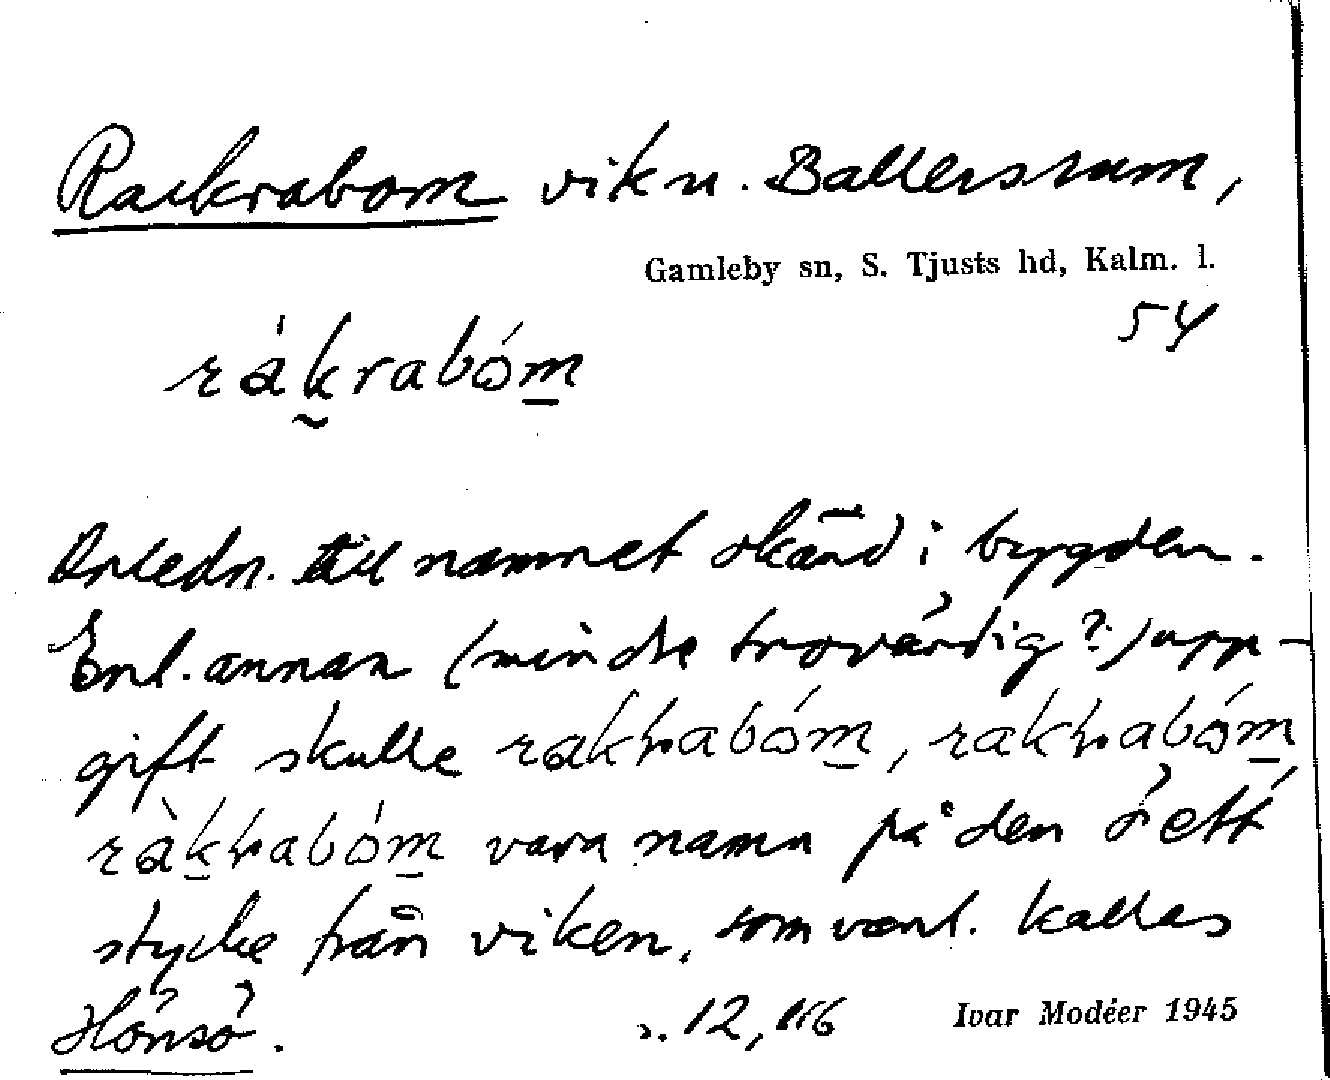 Rackrabom vik n. Ballerstum,
Gamleby sn, S. Tjusts hd, Kalm. l.
54
ràkrabóm
Anledn. till namnet okänd i bygden.
Enl. annan (mindre trovärdig?) upp-
gift skulle rakrabóm, rakrabóm
ràkrabóm vara namn på den ö ett
stycke från viken, som vanl. kallas
Hönsö.
12, 116 Ivar Modéer 1945